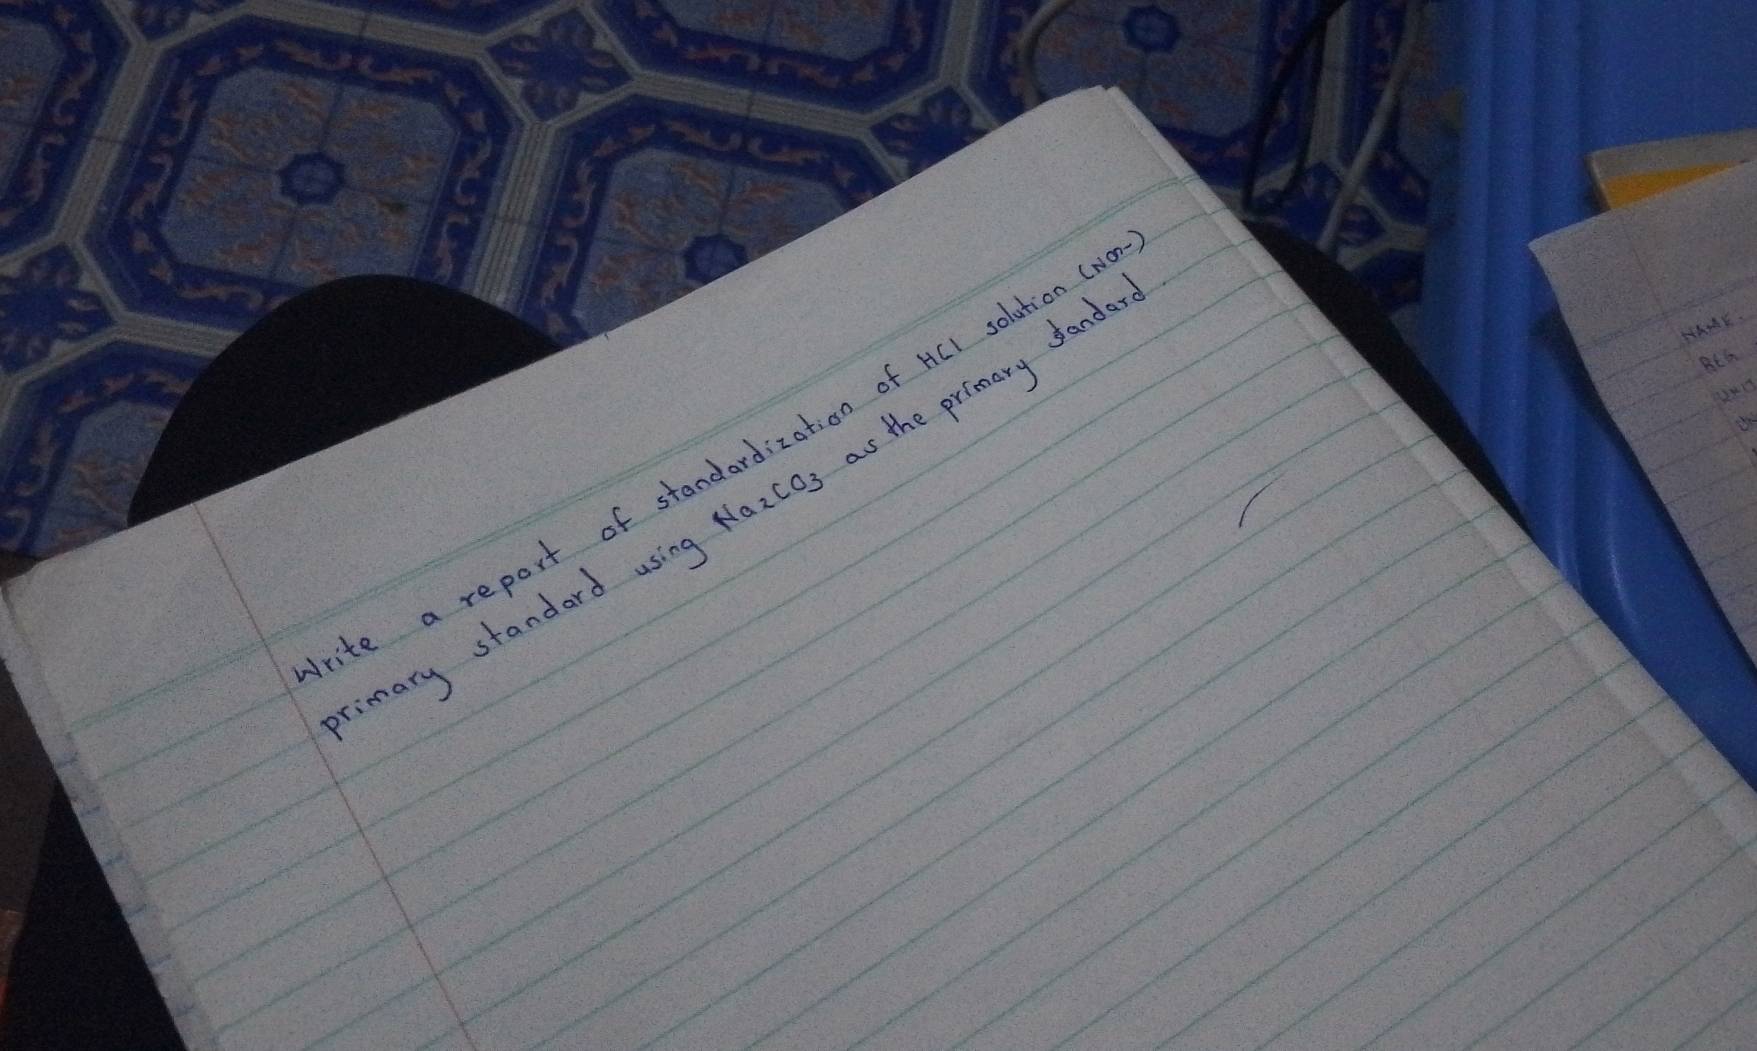 Write a report of standardization of HCl solution (Non-)
primary standard using Na2CO3 as the primary standard
NAME
REG